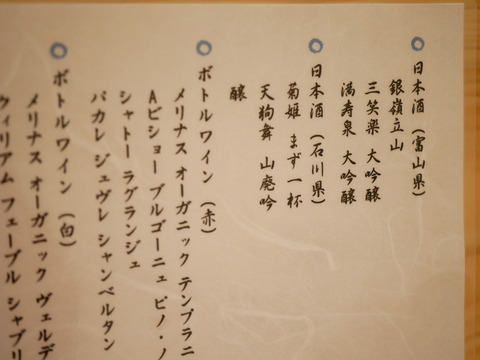 ○日本酒（富山県）
銀嶺立山
三笑楽 大吟醸
満寿泉 大吟醸
○日本酒（石川県）
菊姫 まず一杯
天狗舞 山廃吟
醸
○ボトルワイン（赤）
メリナス オーガニック テンプラニ
Aビショー ブルゴーニュ ピノ・ノ
シャトー ラグランジュ
パカレ ジュヴレ シャンベルタン
○ボトルワイン（白）
メリナス オーガニック ヴェルデ
ウィリアム フェーブル シャブリ